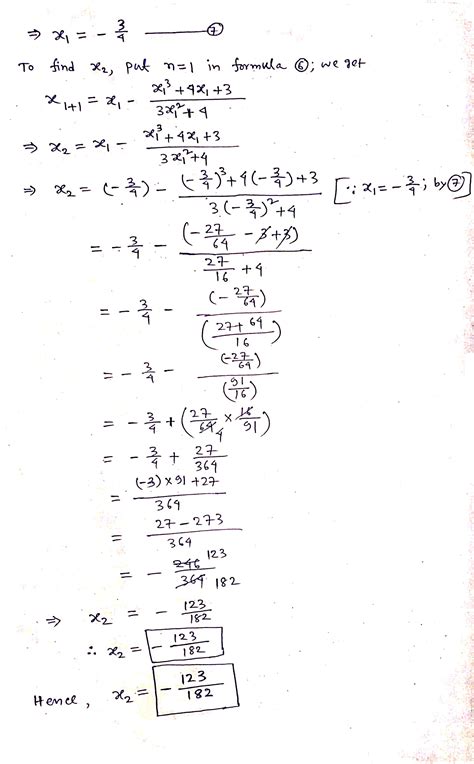 ⇒ x₁ = - 3/4 —— ⑦
To find x₂, put n=1 in formula ⑥; we get
x₁₊₁ = x₁ - (x₁³ + 4x₁ + 3)/(3x₁² + 4)
⇒ x₂ = x₁ - (x₁³ + 4x₁ + 3)/(3x₁² + 4)
⇒ x₂ = (-3/4) - ((-3/4)³ + 4(-3/4) + 3)/(3(-3/4)² + 4) [∵ x₁ = -3/4; by ⑦]
= -3/4 - (-27/64 - 3 + 3)/(27/16 + 4)
= -3/4 - (-27/64)/((27+64)/16)
= -3/4 - (-27/64)/(91/16)
= -3/4 + (27/64 4 × 16/91)
= -3/4 + 27/364
= ((-3)×91+27)/364
= (27-273)/364
= - 246/364 123/182
⇒ x₂ = - 123/182
∴ x₂ = - 123/182
Hence, x₂ = - 123/182